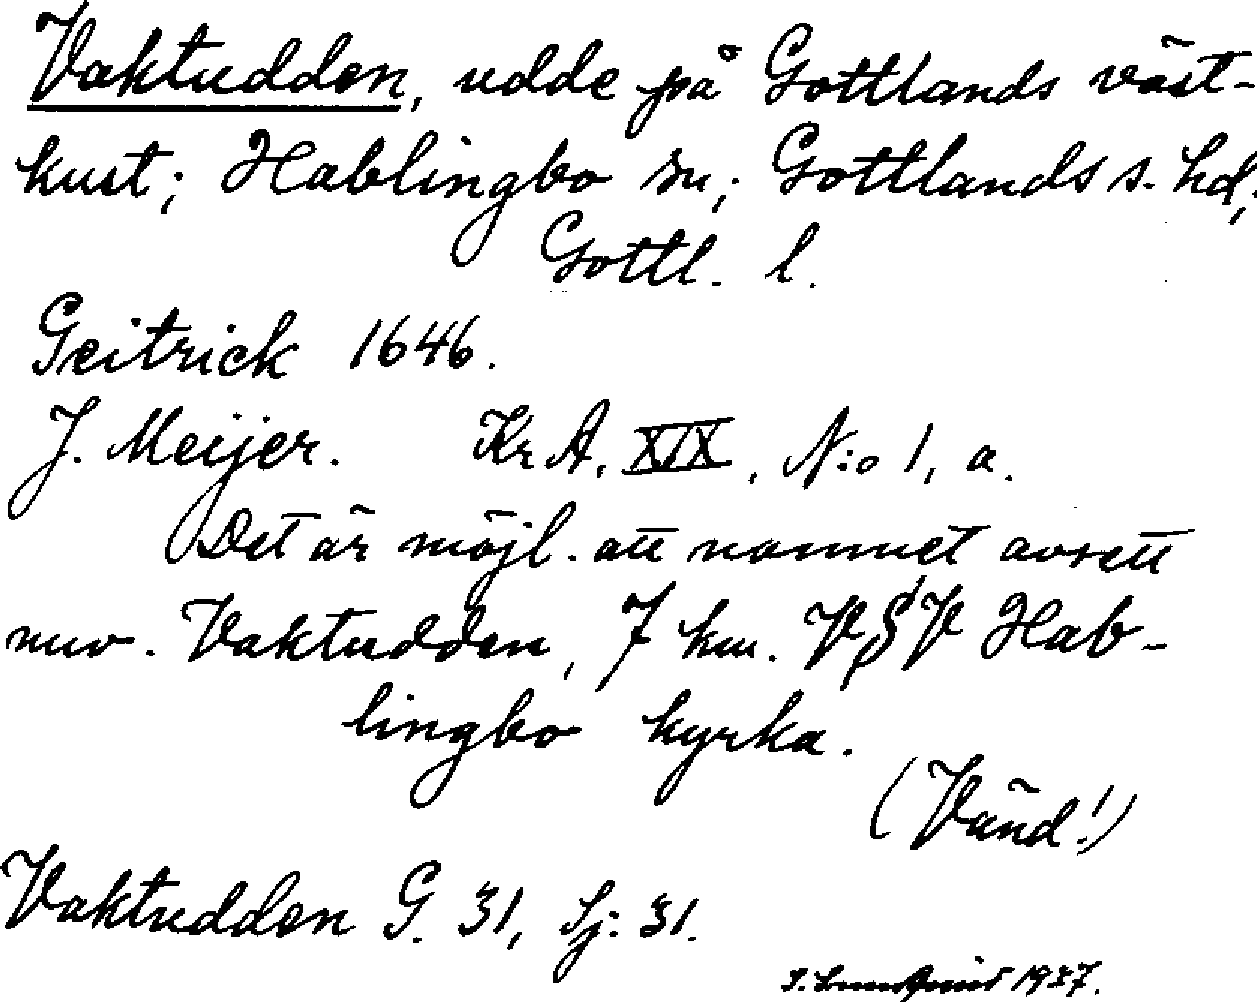 Vaktudden, udde på Gottlands väst-
kust; Hablingbo sn; Gottlands s. hd,
Gottl. l.
Geitrick 1646.
J. Meijer. Kr A, XIX, N:o 1, a.
Det är möjl. att namnet avsett
nuv. Vaktudden, 7 km. VSV Hab-
lingbo kyrka.
(Vänd!)
Vaktudden G. 31, Sj: 31.
1937.